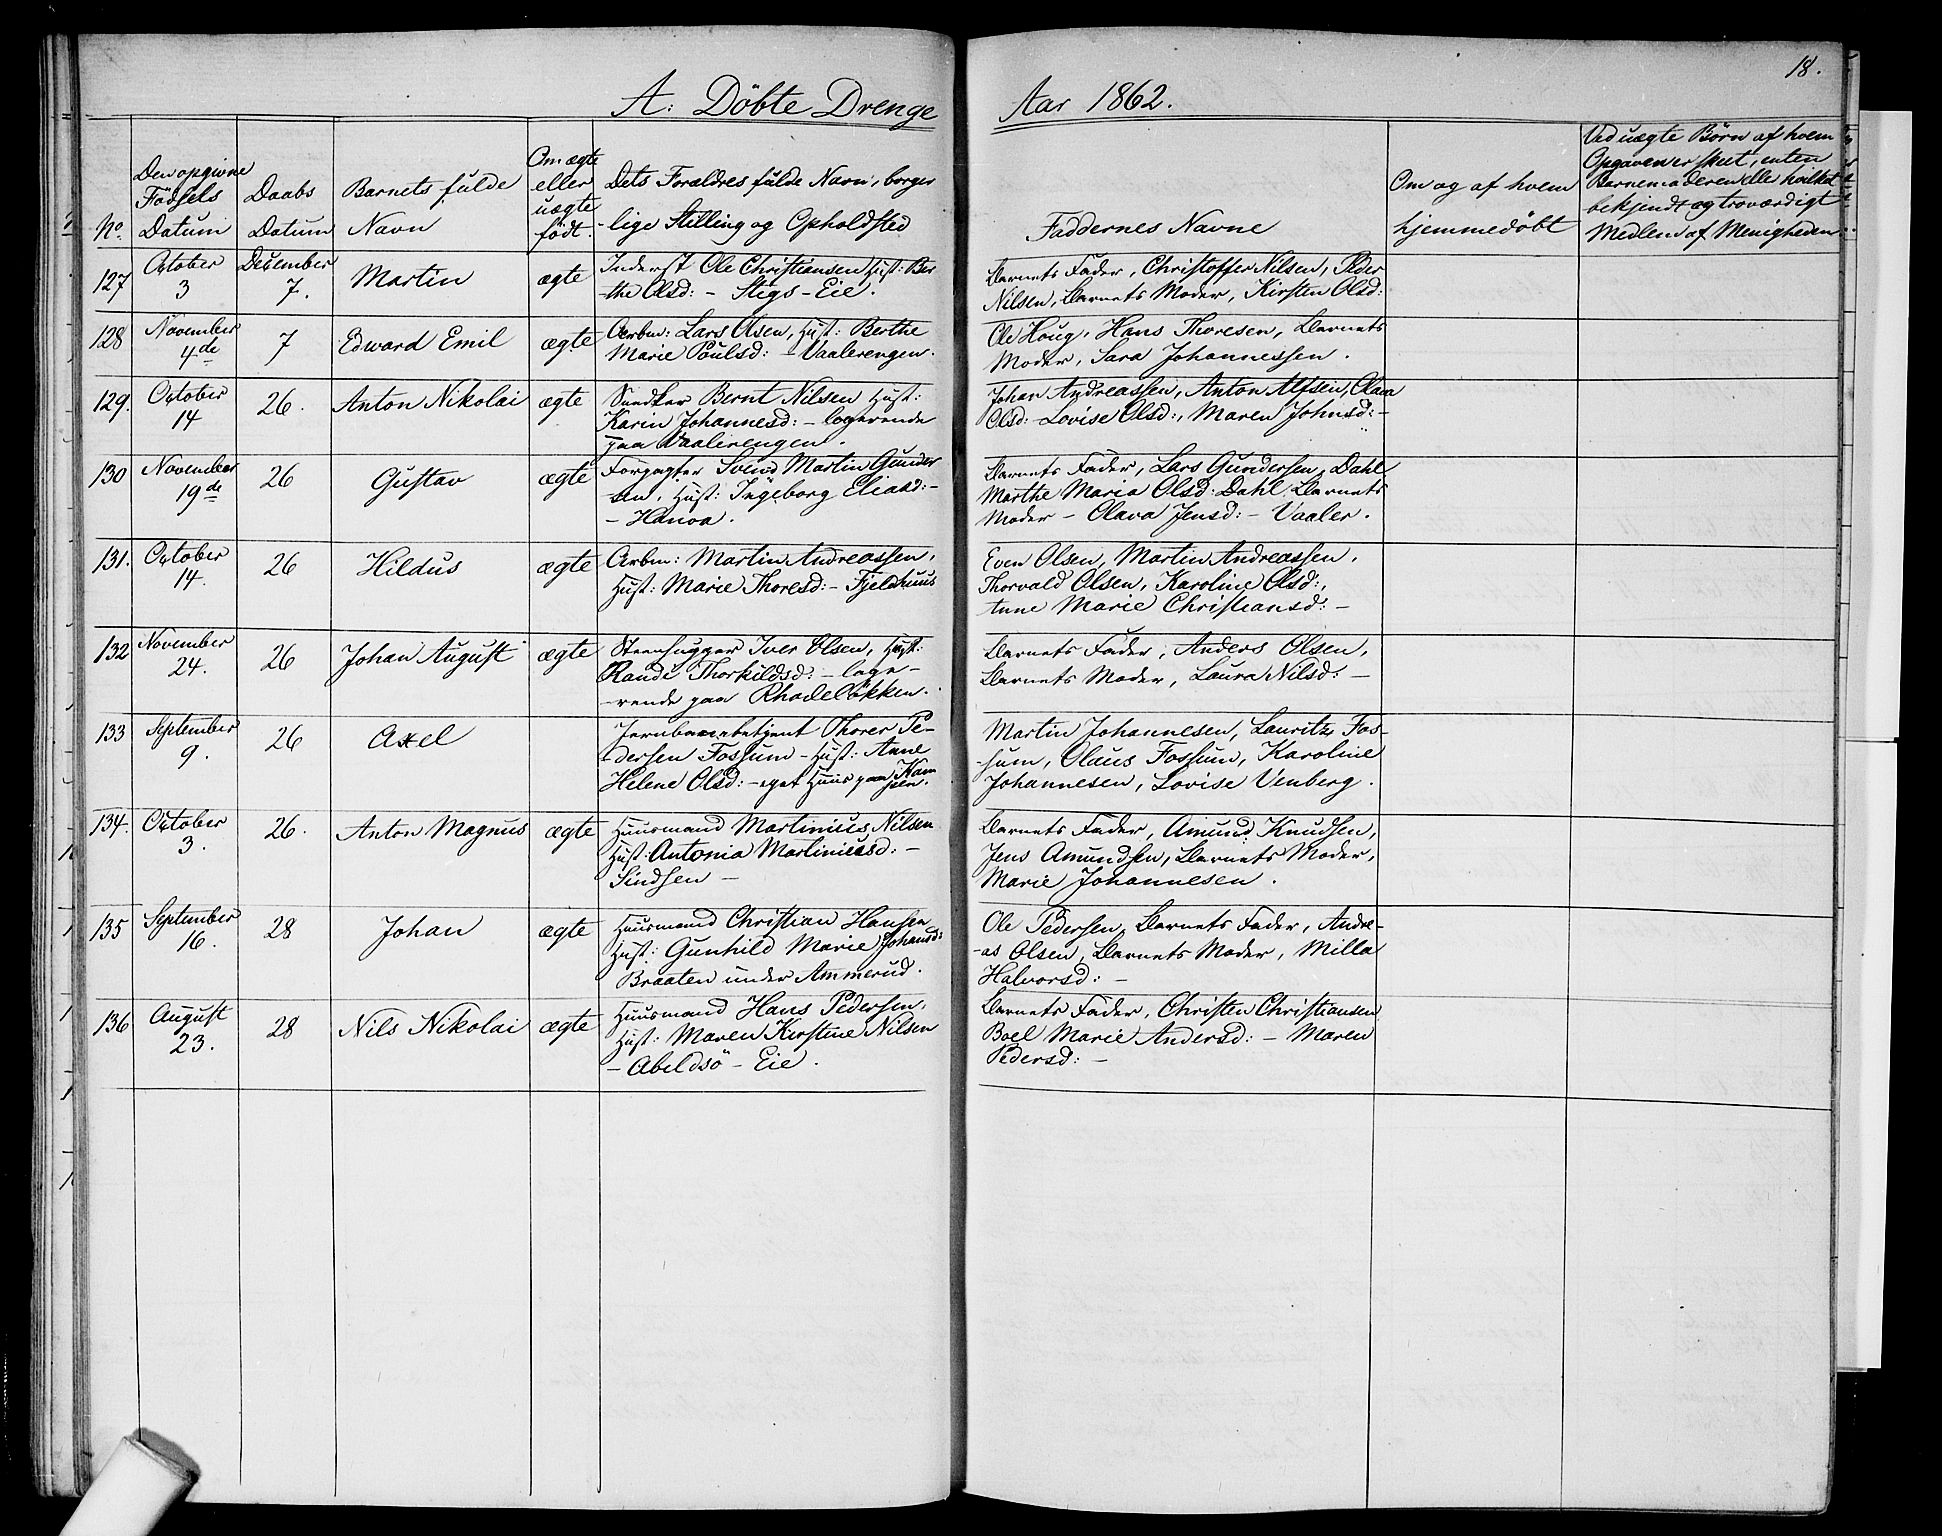 A: Döbte Drenge Aar 1862.
18.
No.
Den opgivne
Födsels
Datum
Daabs
Datum
Barnets fulde
Navn
Om ægte
eller
uægte
født.
Dets Forældres fulde Navn, borger
lige Stilling og Opholdsted
Faddernes Navne
Om og af hvem
hjemmedøbt
Ved uægte Børn af hvem
Opgaven er skeet, enten
Barnemoderen eller hvilket
bekjendt og troværdigt
Medlem af Menigheden
127
October
3
December
7.
Martin
ægte
Inderst Ole Christiansen Hust: Ber
the Olsd: - Stigs - Eie.
Barnets Fader, Christoffer Nilsen, Peder
Nilsen, Barnets Moder, Kirsten Olsd:
128
November
4de
7
Edward Emil
ægte
Arbm: Lars Olsen, Hust: Berthe
Marie Poulsd: - Vaalerengen.
Ole Houg, Hans Thoresen, Barnets
Moder, Sara Johannessen.
129.
October
14
26.
Anton Nikolai
ægte
Snedker Bernt Nilsen Hust:
Karin Johannesd: - logerende
paa Vaalerengen.
Johan Andreassen, Anton Alfsen, Olava
Olsd: Lovise Olsd:, Maren Johnsd: -
130
November
19de
26
Gustav
ægte
Forpagter Svend Martin Gunder
sen, Hust: Ingeborg Eliasd: -
- Hanoa.
Barnets Fader, Lars Gundersen Dahl
Marthe Maria Olsd: Dahl, Barnets
Moder - Olava Jensd: - Vaaler.
131.
October
14.
26
Hildus
ægte
Arbm: Martin Andreassen,
Hust: Marie Thoresd: - Fjeldhuus
Even Olsen, Martin Andreassen,
Thorvald Olsen, Karoline Olsd:,
Anne Marie Christiansd: -
132
November
24.
26
Johan August
ægte
Steenhugger Iver Olsen, Hust:
Randi Thorkildsd: - loge-
rende paa Rhodeløkken.
Barnets Fader, Anders Olsen,
Barnets Moder, Laura Nilsd: -
133
September
9.
26
Axel
Jernbanebetjent Thorer Pe-
dersen Fossum - Hust: Anne
Helene Olsd: - eget Huus paa Kam
pen.
Martin Johannesen, Lauritz Fos-
sum, Olaus Fossum, Karoline
Johannesen, Lovise Venberg.
134.
October
3.
26.
Anton Magnus
ægte
Huusmand Martinius Nilsen
Hust: Antonia Martiniusd: -
Sindsen -
Barnets Fader, Amund Knudsen,
Jens Amundsen, Barnets Moder,
Marie Johannesen.
135
September
16.
28
Johan
ægte
Huusmand Christian Hansen
Hust: Gunhild Marie Johansd:
Braaten under Ammerud.
Ole Pedersen, Barnets Fader, Andre-
as Olsen, Barnets Moder, Milla
Halvorsd: -
136
August
23.
28
Nils Nikolai
ægte
Huusmand Hans Pedersen,
Hust: Maren Kirstine Nilsen
- Abeldsö - Eie.
Barnets Fader, Christen Christiansen
Boel Marie Andersd: - Maren
Pedersd: -